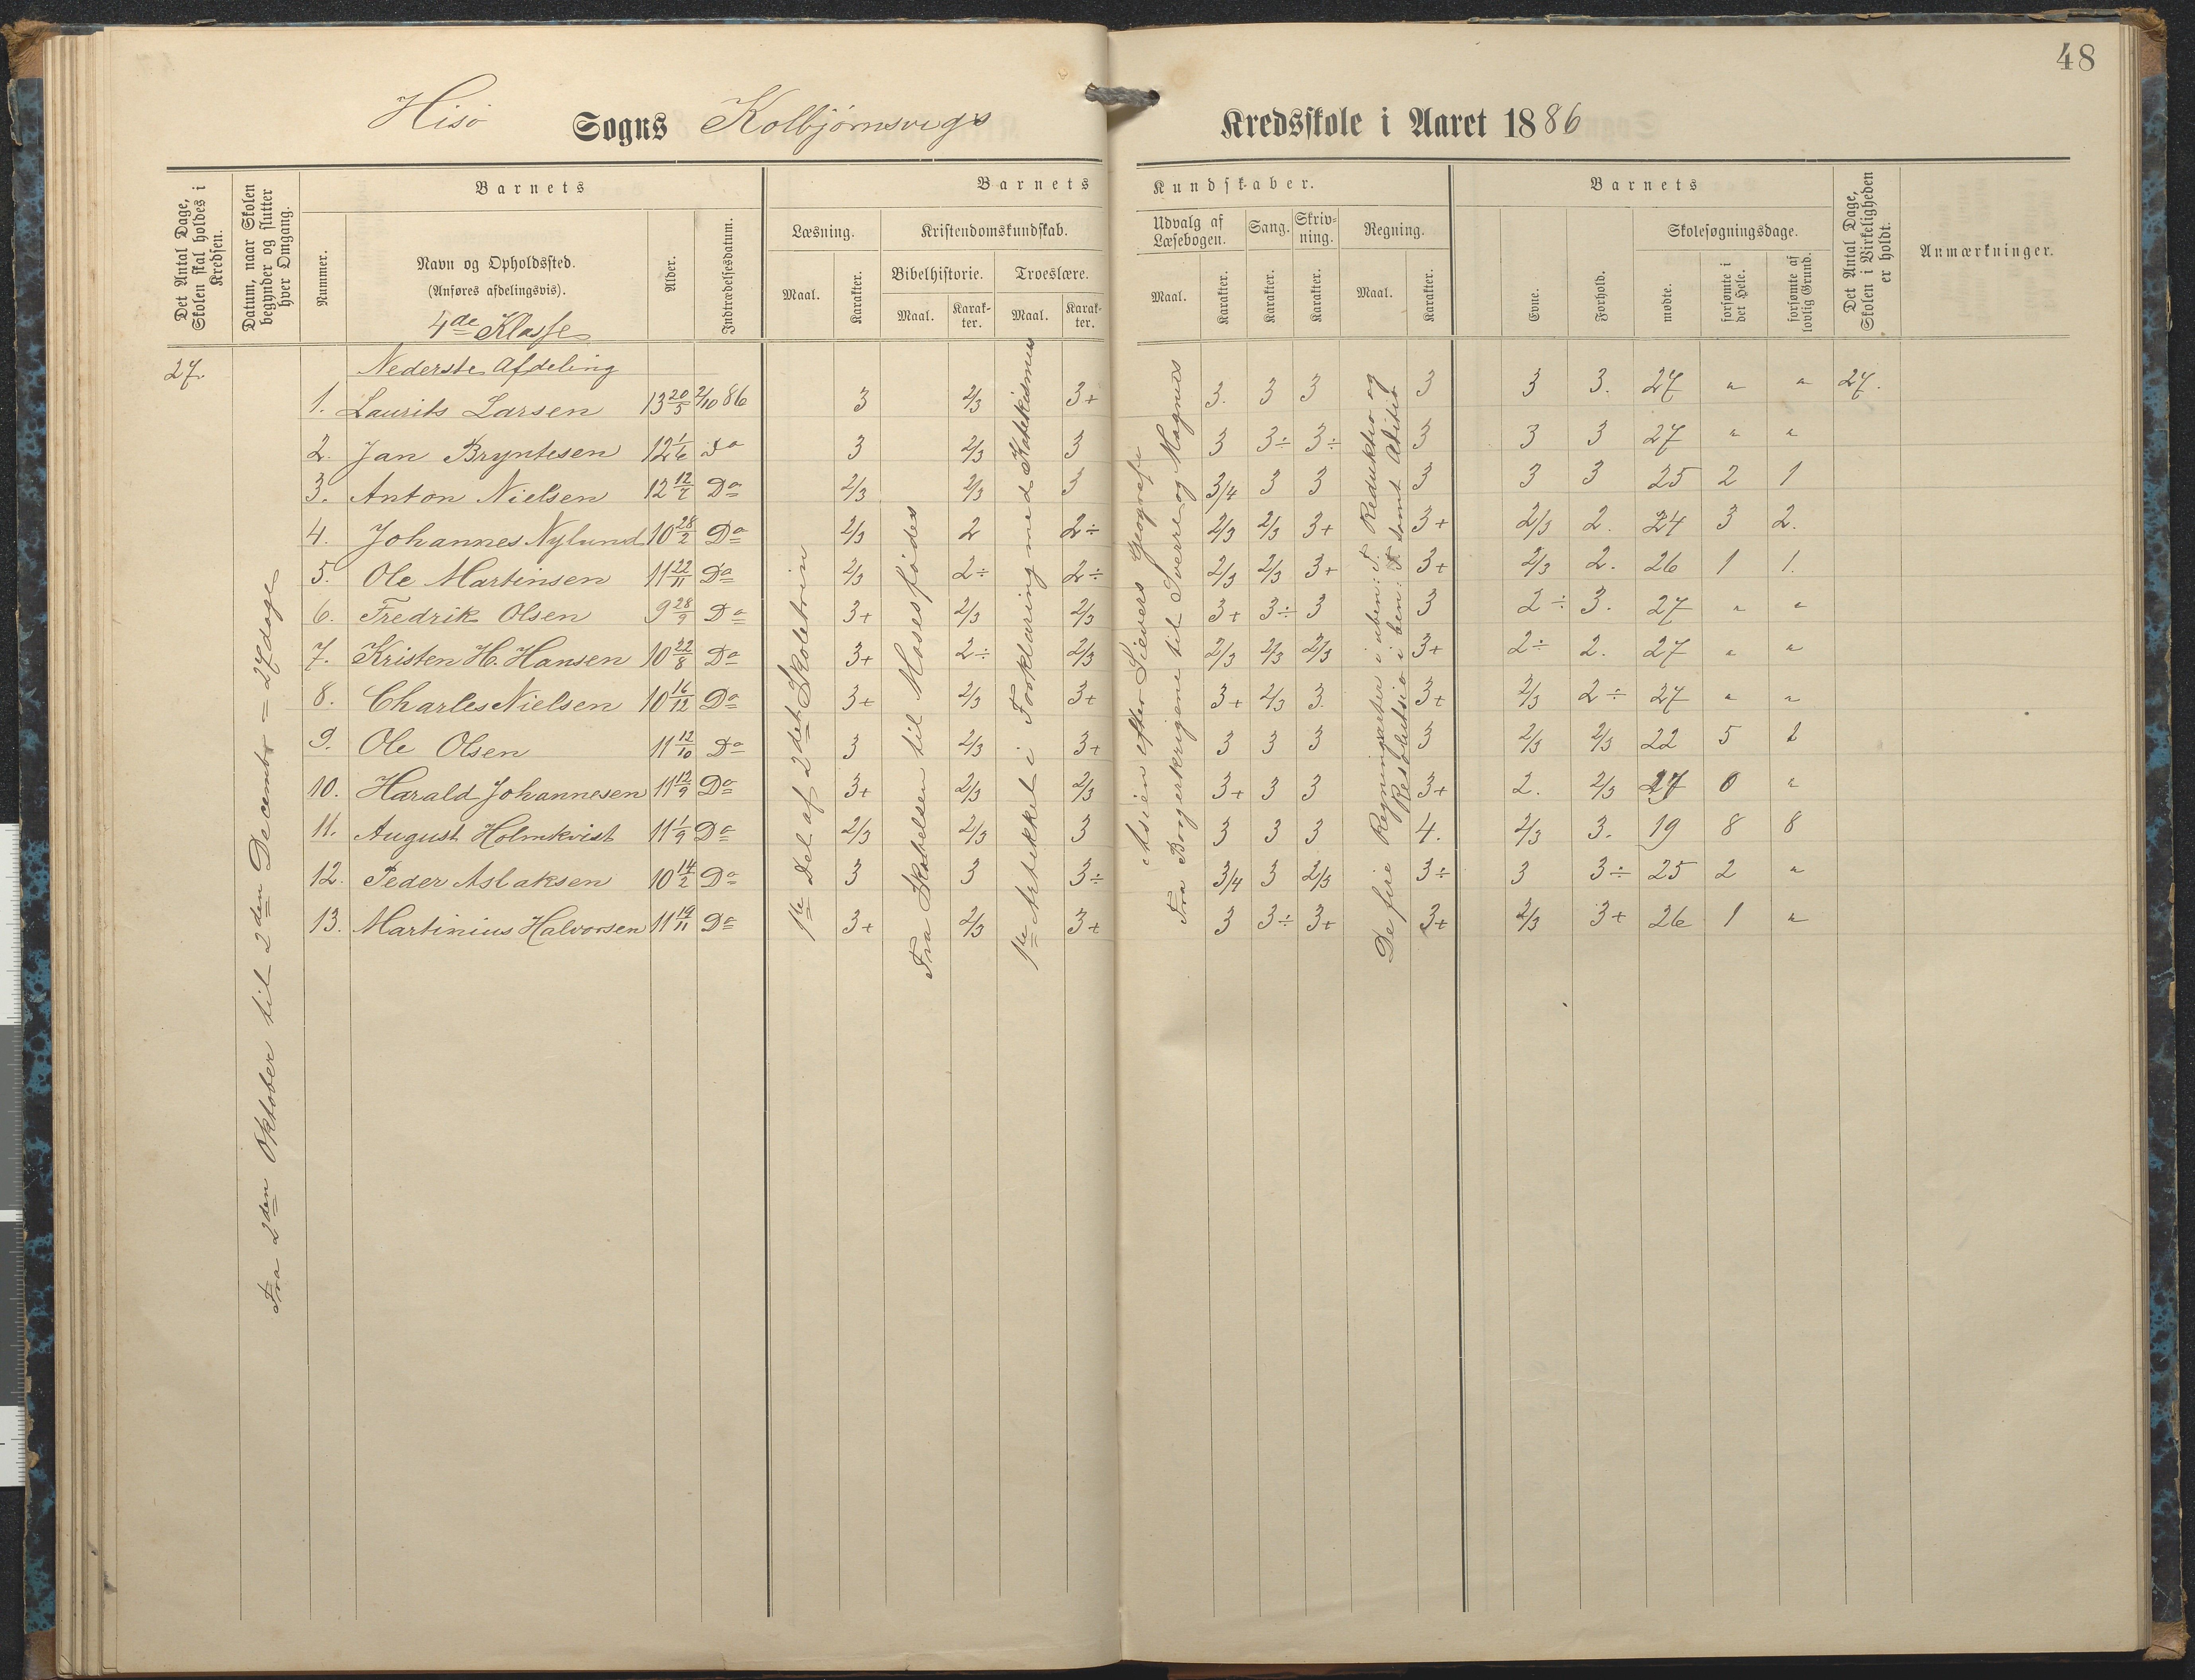 48
Hisö Sogns Kolbjørnsvigs Kredsskole i Aaret 1886
Det Antal Dage, Skolen skal holdes i Kredsen.
Datum, naar Skolen begynder og slutter hver Omgang.
Barnets
Nummer.
Navn og Opholdssted.
(Anføres afdelingsvis).
4de Klasse
Alder.
Indtrædelsesdatum.
Barnets Kundskaber.
Læsning.
Maal.
Karakter.
Kristendomskundskab.
Bibelhistorie.
Maal.
Karakter.
Troeslære.
Maal.
Karakter.
Udvalg af Læsebogen.
Maal.
Karakter.
Sang.
Karakter.
Skrivning.
Karakter.
Regning.
Maal.
Karakter.
Barnets
Evne.
Forhold.
Skolesøgningsdage.
mødte.
forsømte i det Hele.
forsømte af lovlig Grund.
Det Antal Dage, Skolen i Virkeligheden er holdt.
Anmærkninger.
27.
Nederste Afdeling
1. Laurits Larsen 13 20/5 2/10 86 3 2/3 3+ 3. 3 3 3 3 3. 27 " " 27.
2. Jan Bryntesen 12 1/6 Do 3 2/3 3 3 3÷ 3÷ 3 3 3 27 " "
3. Anton Nielsen 12 12/7 Do 2/3 2/3 3 3/4 3 3 3 3 3 25 2 1
4. Johannes Nylund 10 28/2 Do 2/3 2 2÷ 2/3 2/3 3+ 3+ 2/3 2. 24 3 2.
5. Ole Martinsen 11 22/11 Do 2/3 2÷ 2÷ 2/3 2/3 3+ 3+ 2/3 2. 26 1 1.
6. Fredrik Olsen 9 28/9 Do 3+ 2/3 2/3 3+ 3÷ 3 3 2÷ 3. 27 " "
7. Kristen H. Hansen 10 22/8 Do 3+ 2÷ 2/3 2/3 2/3 2/3 3+ 2÷ 2. 27 " "
8. Charles Nielsen 10 16/12 Do 3+ 2/3 3+ 3+ 2/3 3. 3+ 2/3 2÷ 27 " "
9. Ole Olsen 11 12/10 Do 3 2/3 3+ 3 3 3 3 2/3 2/3 22 5 2
10. Harald Johannesen 11 12/9 Do 3+ 2/3 2/3 3+ 3 3 3+ 2. 2/3 27 0 "
11. August Holmkvist 11 1/9 Do 2/3 2/3 3 3 3 3 4. 2/3 3. 19 8 8
12. Peder Aslaksen 10 14/2 Do 3 3 3÷ 3/4 3 2/3 3÷ 3 3÷ 25 2 "
13. Martinius Halvorsen 11 19/11 Do 3+ 2/3 3+ 3 3÷ 3+ 3+ 2/3 3+ 26 1 "
Fra 2den Oktober til 2den Decembr = 27 dage
1te Del af 2det Skoletrin
Fra Skabelsen til Moses fødes
1te Artikkel i Forklaring med Katekismus
Asien efter Sievers Geografi
Fra Borgerkrigene til Sverre og Magnus
De fire Regningsarter i uben: T. Reduktio og
Resolutsio i ben: T. samt Aditio